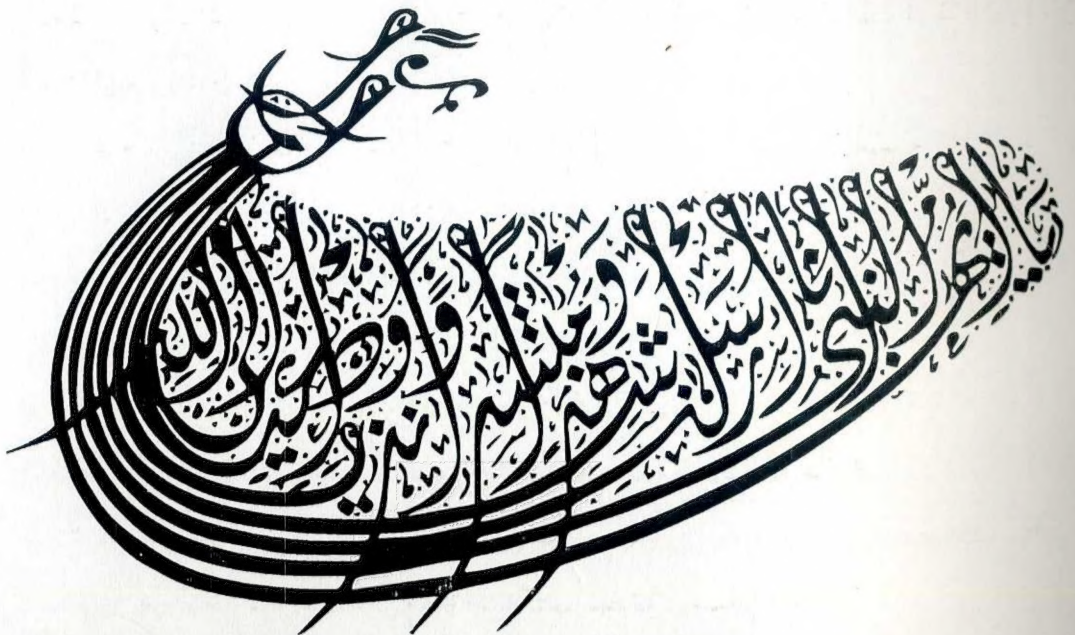 يا أيها النبي إنا أرسلناك شاهدا ومبشرا ونذيرا وداعيا إلى الله